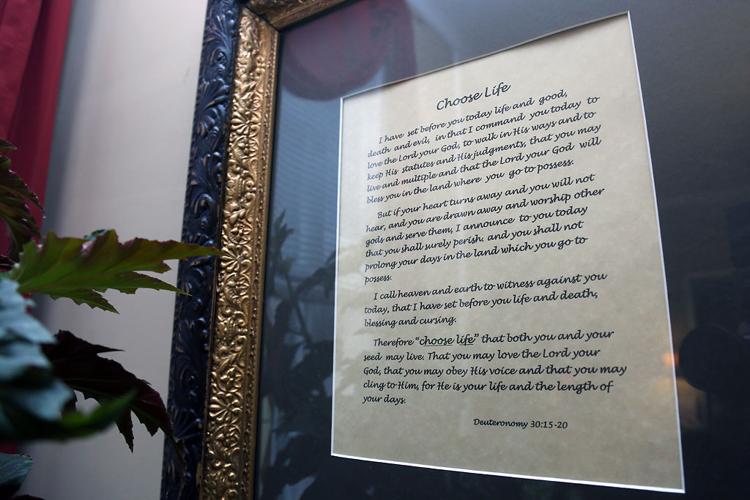 Choose Life
I have set before you today life and good,
death and evil, in that I command you today to
love the Lord your God, to walk in His ways and to
keep His statutes and His judgments, that you may
live and multiple and that the Lord your God will
bless you in the land where you go to possess.
But if your heart turns away and you will not
hear, and you are drawn away and worship other
gods and serve them, I announce to you today
that you shall surely perish. and you shall not
prolong your days in the land which you go to
possess.
I call heaven and earth to witness against you
today, that I have set before you life and death,
blessing and cursing.
Therefore "choose life" that both you and your
seed may live. That you may love the Lord your
God, that you may obey His voice and that you may
cling to Him, for He is your life and the length of
your days.
Deuteronomy 30:15-20